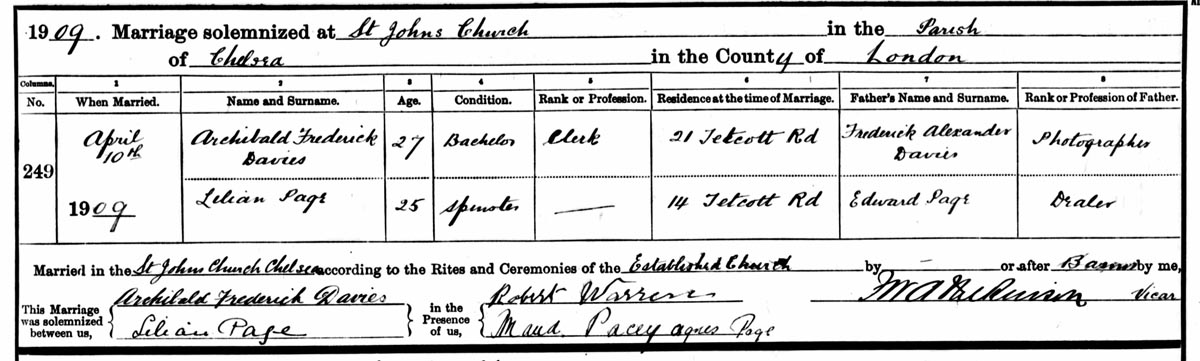 1909. Marriage solemnized at St Johns Church in the Parish
of Chelsea in the County of London
Columns. 1 2 3 4 5 6 7 8
No. When Married. Name and Surname. Age. Condition. Rank or Profession. Residence at the time of Marriage. Father's Name and Surname. Rank or Profession of Father.
249 April 10th 1909 Archibald Frederick Davies 27 Bachelor Clerk 21 Tetcott Rd Frederick Alexander Davies Photographer
Lilian Page 25 Spinster — 14 Tetcott Rd Edward Page Dealer
Married in the St Johns Church Chelsea according to the Rites and Ceremonies of the Established Church by — or after Banns by me,
This Marriage was solemnized between us, Archibald Frederick Davies in the Presence of us, Robert Warren Vicar
Lilian Page Maud Pacey Agnes Page